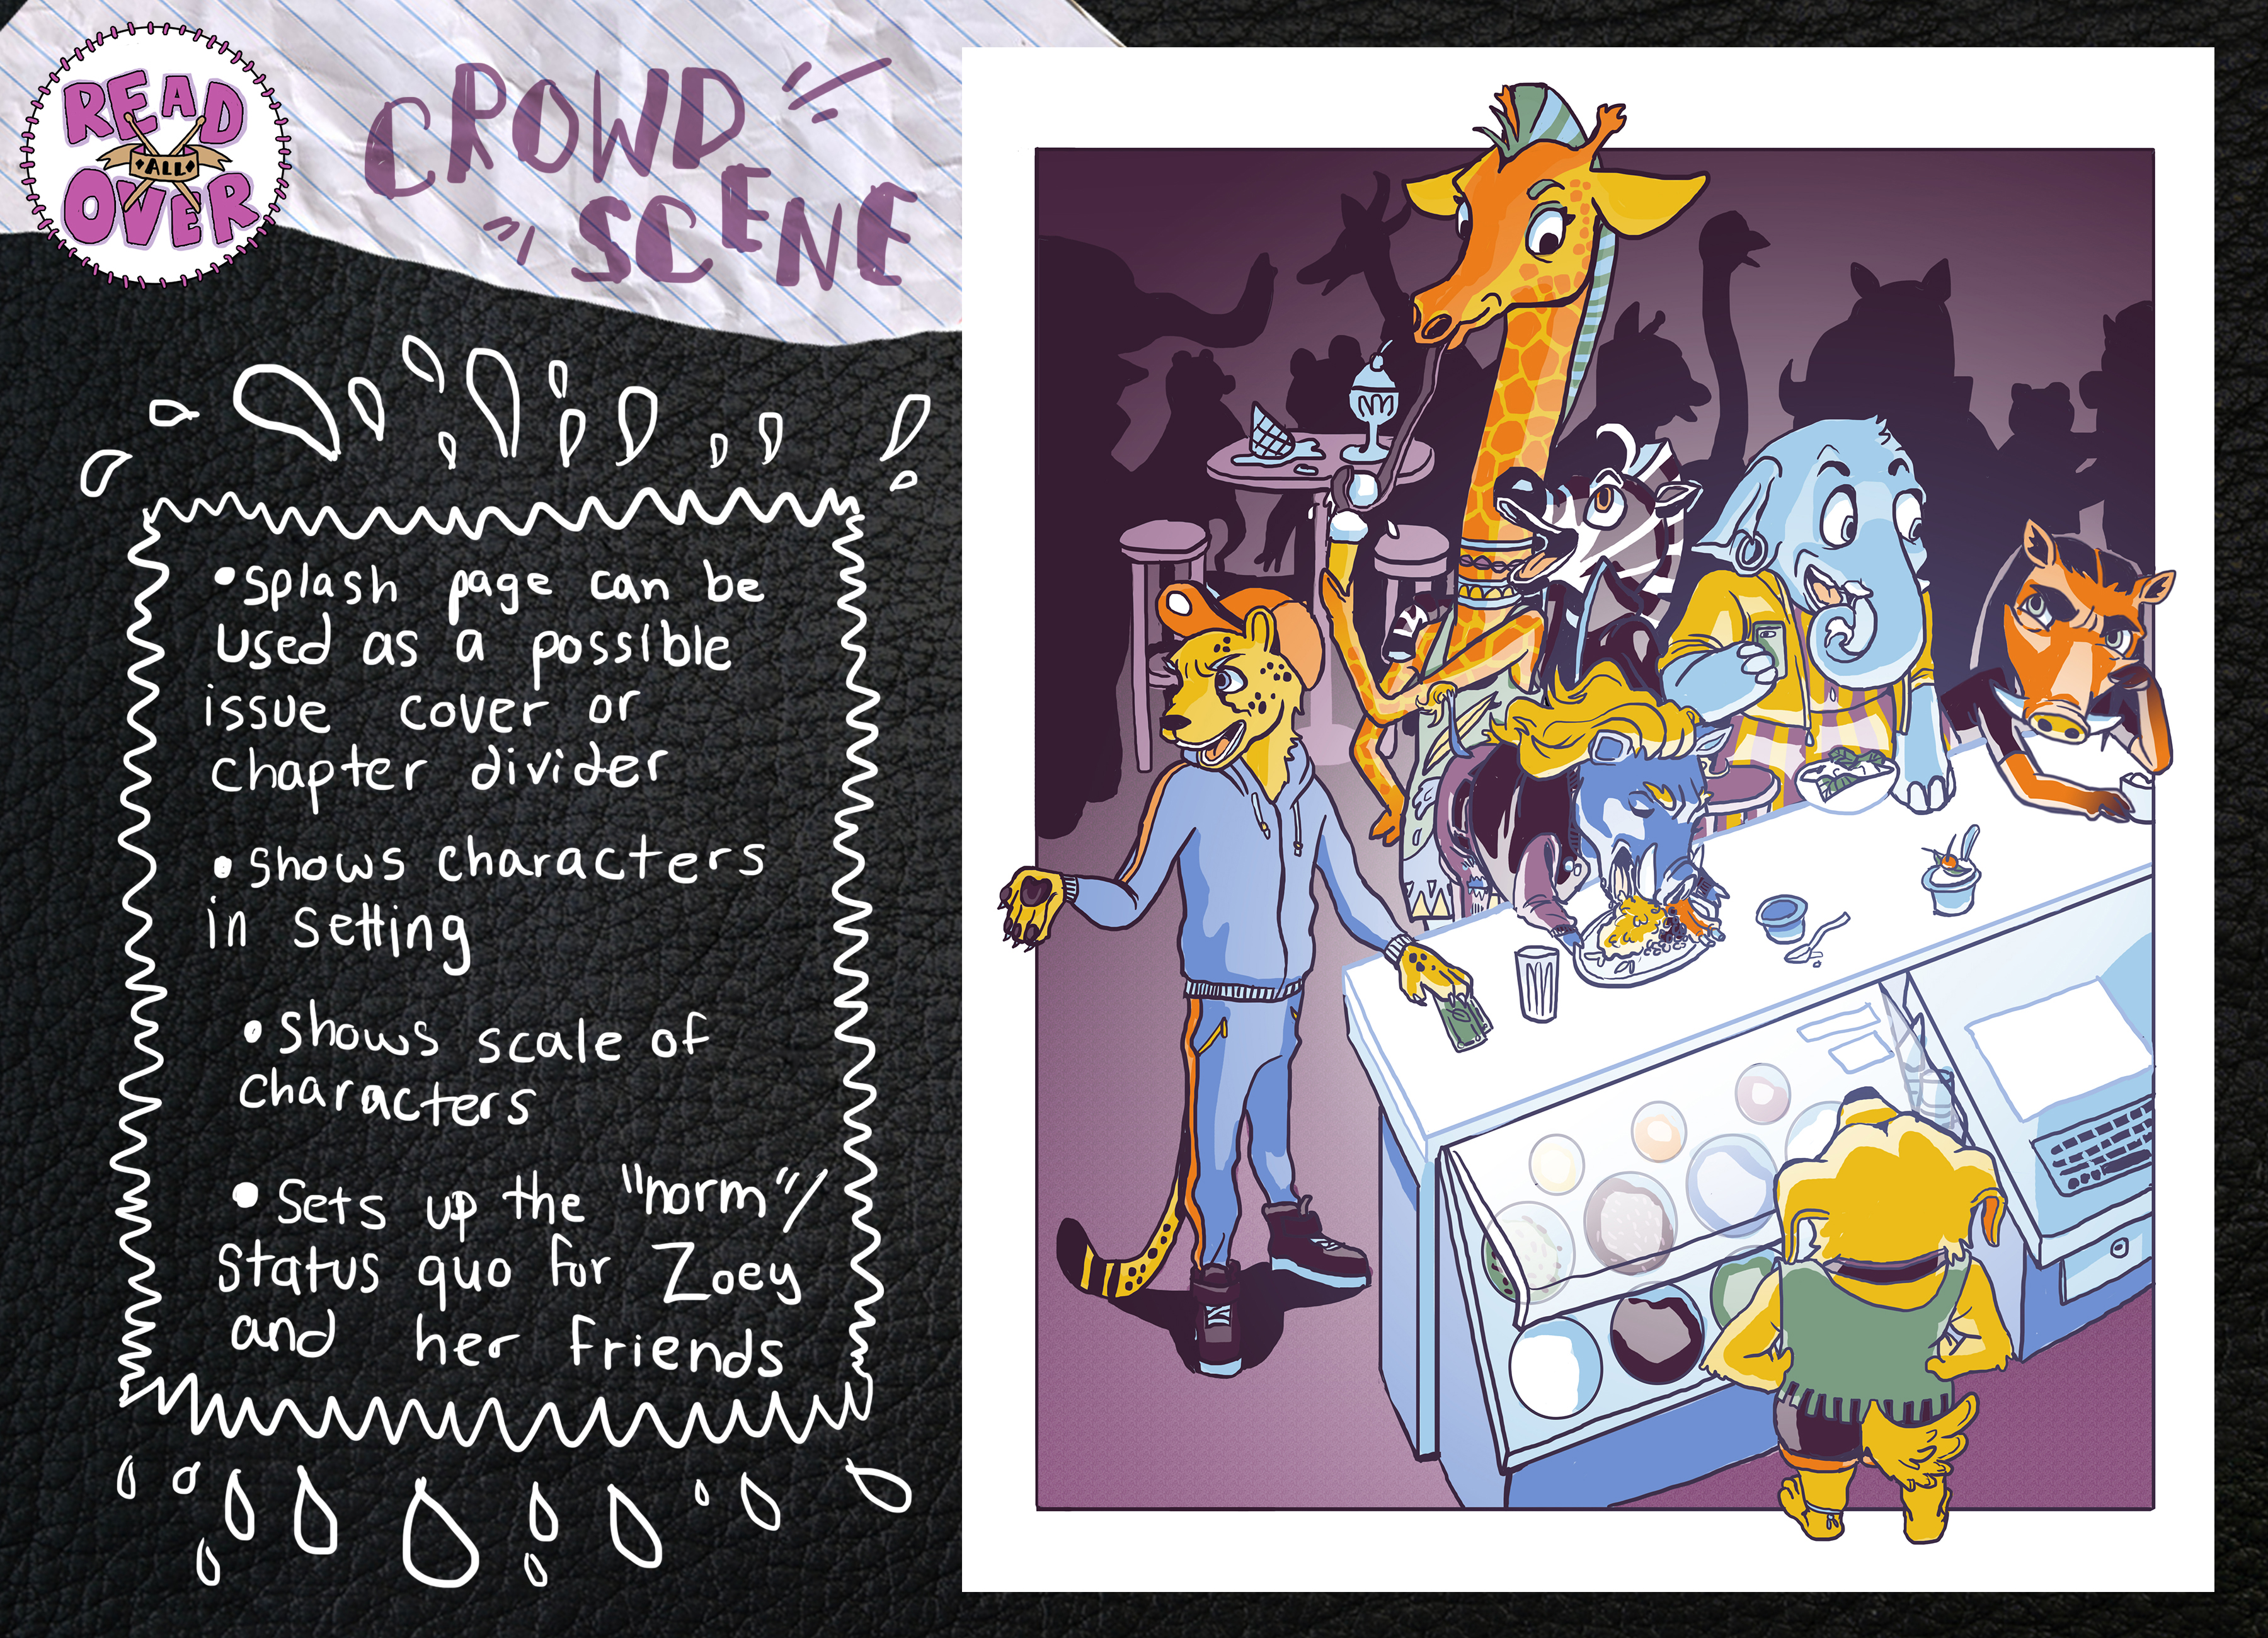 READ
ALL
OVER
CROWD
SCENE
•Splash page can be
used as a possible
issue cover or
chapter divider
•Shows characters
in setting
•Shows scale of
characters
•Sets up the "norm"/
status quo for Zoey
and her friends